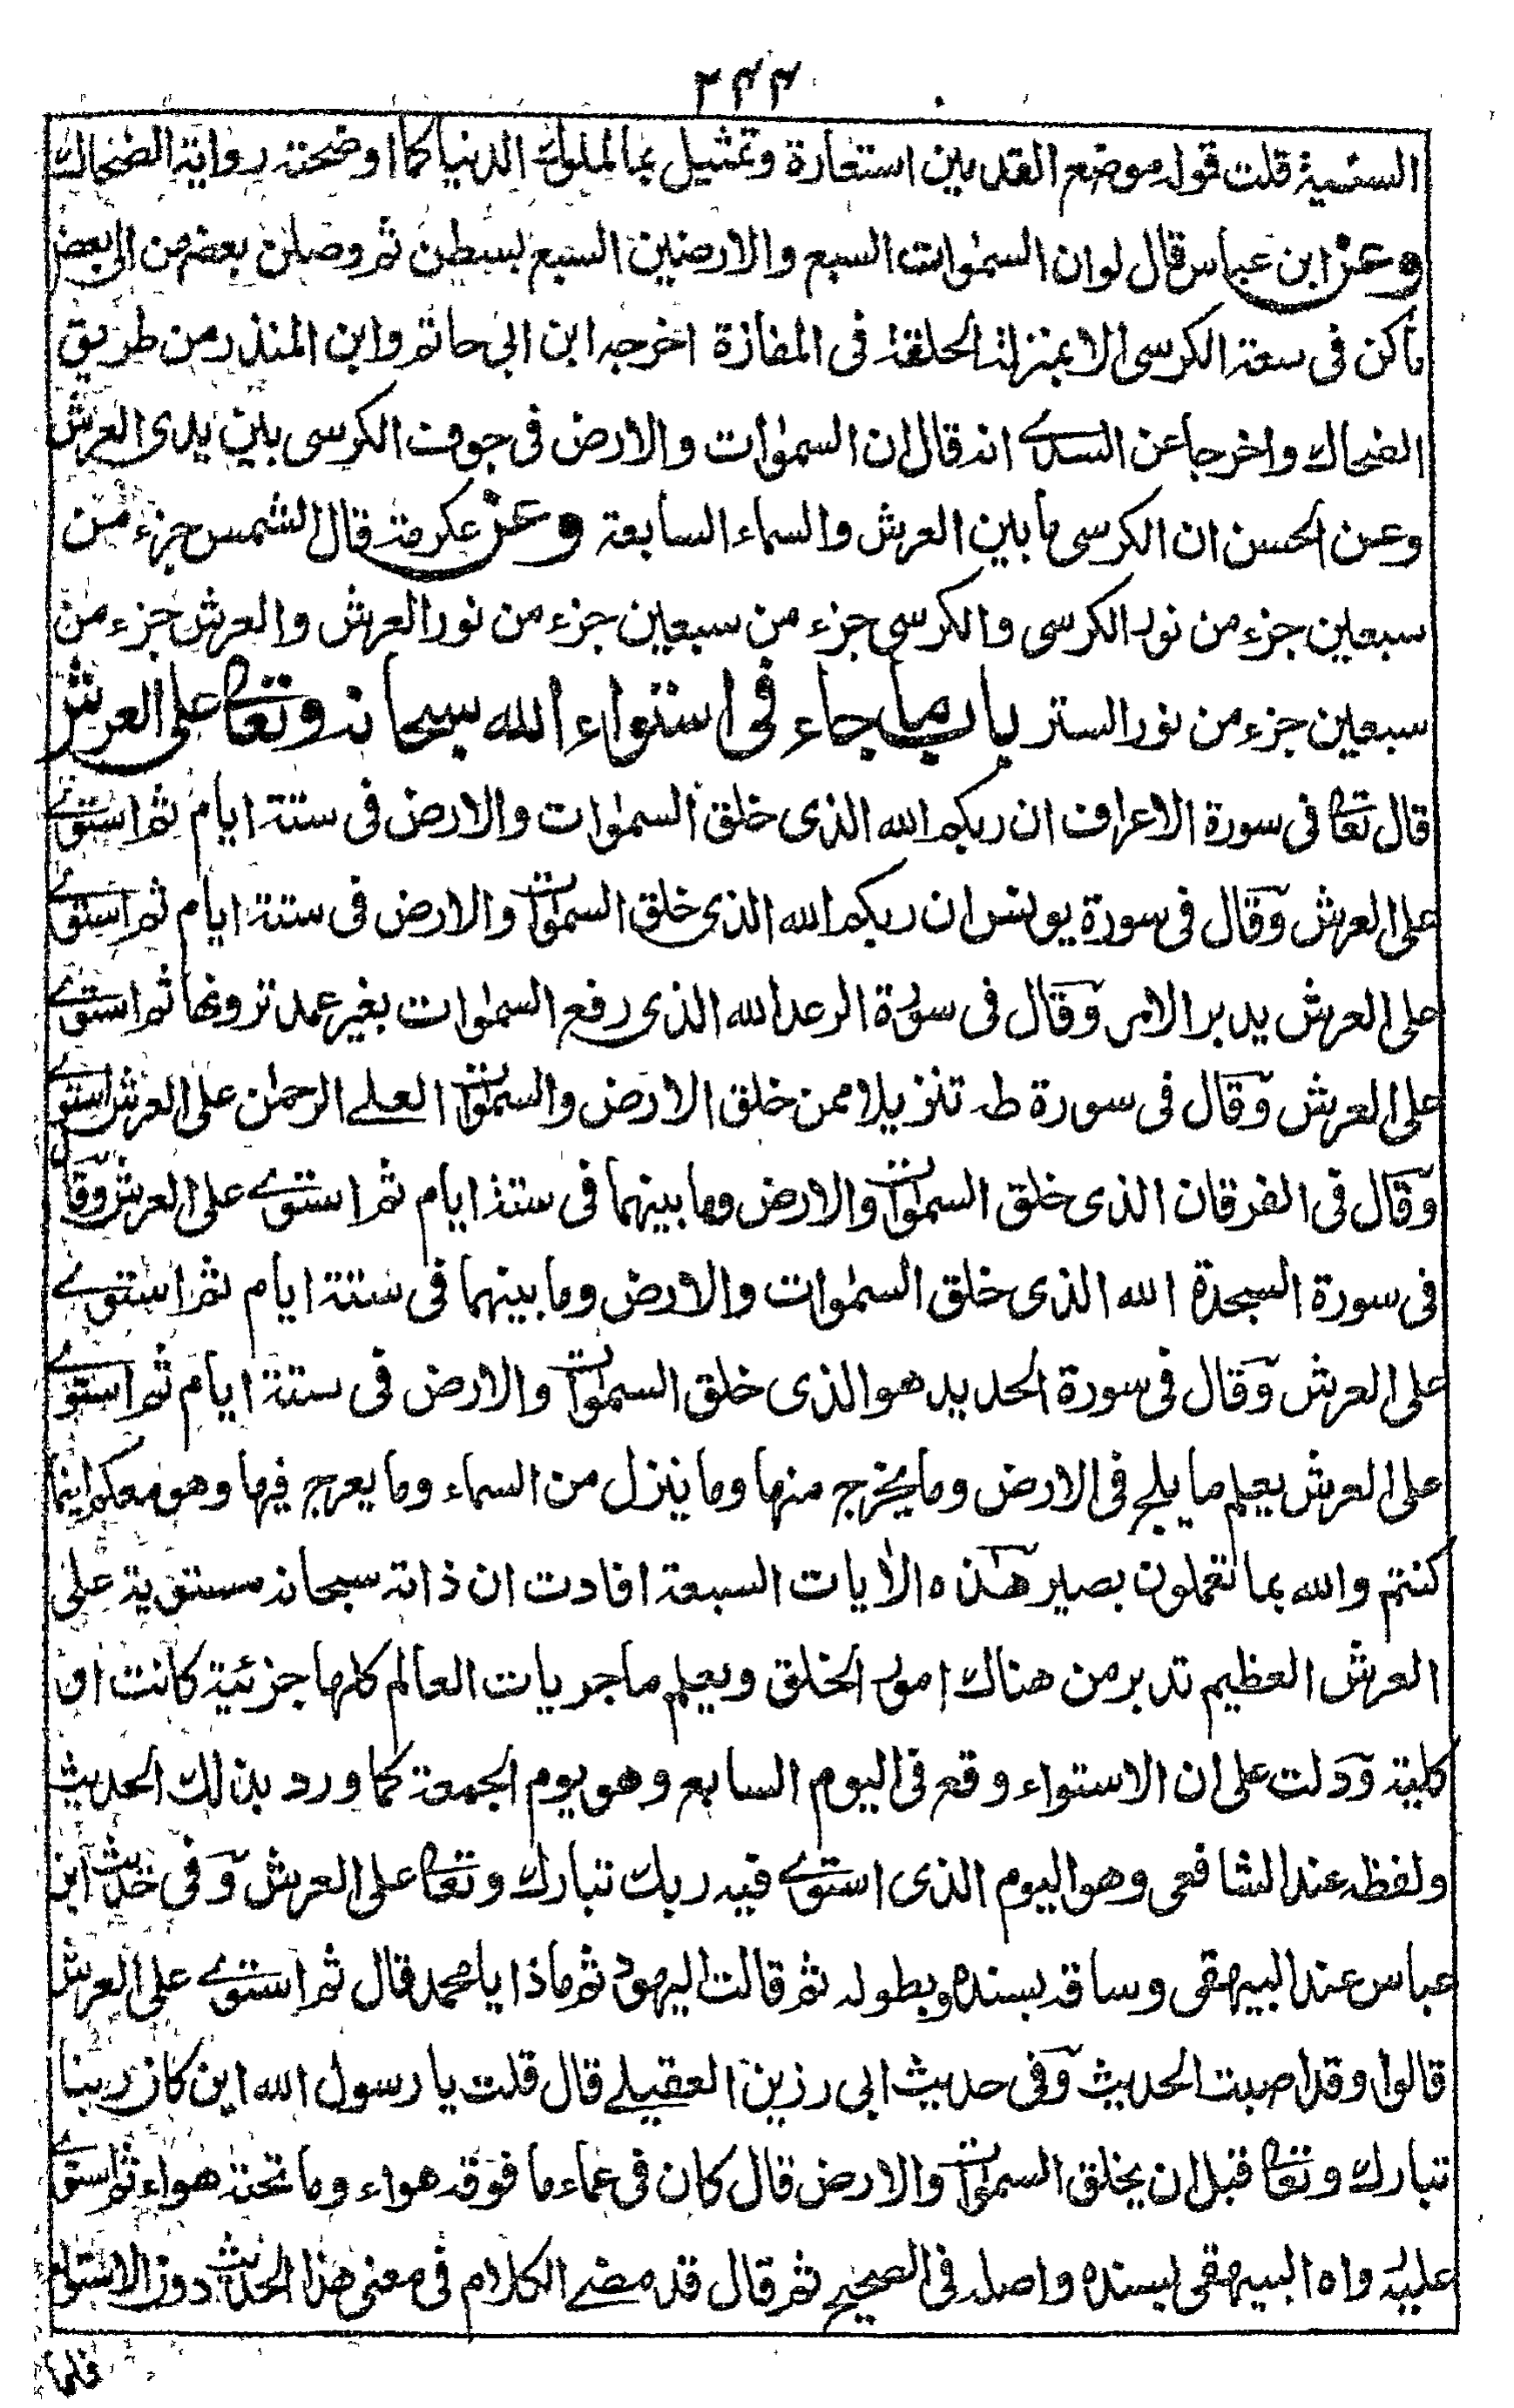 ٢٤٤
السنية قلت قوله موضع القدمين استعارة وتمثيل بما لملوك الدنيا كما اوضحته رواية الضحاك
وعن ابن عباس قال لو ان السمٰوات السبع والارضين السبع بسطن ثم وصلن بعضهن الى بعض
ما كن فى سعة الكرسى الا بمنزلة الحلقة فى المفازة اخرجه ابن ابى حاتم وابن المنذر من طريق
الضحاك واخرجا عن السدے انه قال ان السمٰوات والارض فى جوف الكرسى بين يدى العرش
وعن الحسن ان الكرسى ما بين العرش والسماء السابعة وعن عكرمة قال الشمس جزء من
سبعين جزء من نور الكرسى والكرسى جزء من سبعين جزء من نور العرش والعرش جزء من
سبعين جزء من نور الستر باب ما جاء فى استواء الله سبحانه وتعا على العرش
قال تعا فى سورة الاعراف ان ربكم الله الذى خلق السمٰوات والارض فى ستة ايام ثم استوے
على العرش وقال فى سورة يونس ان ربكم الله الذى خلق السمٰوات والارض فى ستة ايام ثم استوے
على العرش يدبر الامر وقال فى سورة الرعد الله الذى رفع السمٰوات بغير عمد ترونها ثم استوے
على العرش وقال فى سورة طه تنزيلا ممن خلق الارض والسمٰوات العلے الرحمٰن على العرش استوے
وقال فى الفرقان الذى خلق السمٰوات والارض وما بينهما فى ستة ايام ثم استوے على العرش وقال
فى سورة السجدة الله الذى خلق السمٰوات والارض وما بينهما فى ستة ايام ثم استوے
على العرش وقال فى سورة الحديد هو الذى خلق السمٰوات والارض فى ستة ايام ثم استوے
على العرش يعلم ما يلج فى الارض وما يخرج منها وما ينزل من السماء وما يعرج فيها وهو معكم اينما
كنتم والله بما تعملون بصير هٰذه الاٰيات السبعة افادت ان ذاته سبحانه مستوية على
العرش العظيم تدبر من هناك امور الخلق ويعلم ماجريات العالم كلها جزئية كانت او
كلية ودلت على ان الاستواء وقع فى اليوم السابع وهو يوم الجمعة كما ورد بذلك الحديث
ولفظه عند الشافعى وهو اليوم الذى استوے فيه ربك تبارك وتعا على العرش وفى حديث ابن
عباس عند البيهقى وساقه بسنده وبطوله ثم قالت اليهود ثم ماذا يا محمد قال ثم استوے على العرش
قالوا وقد اصبت الحديث وفى حديث ابى رزين العقيلے قال قلت يا رسول الله اين كان ربنا
تبارك وتعا قبل ان يخلق السمٰوات والارض قال كان فى عماء ما فوقه هواء وما تحته هواء ثم استوے
عليه رواه البيهقى بسنده واصله فى الصحيح ثم قال قد مضے الكلام فى معنى هذا الحديث دون الاستواء